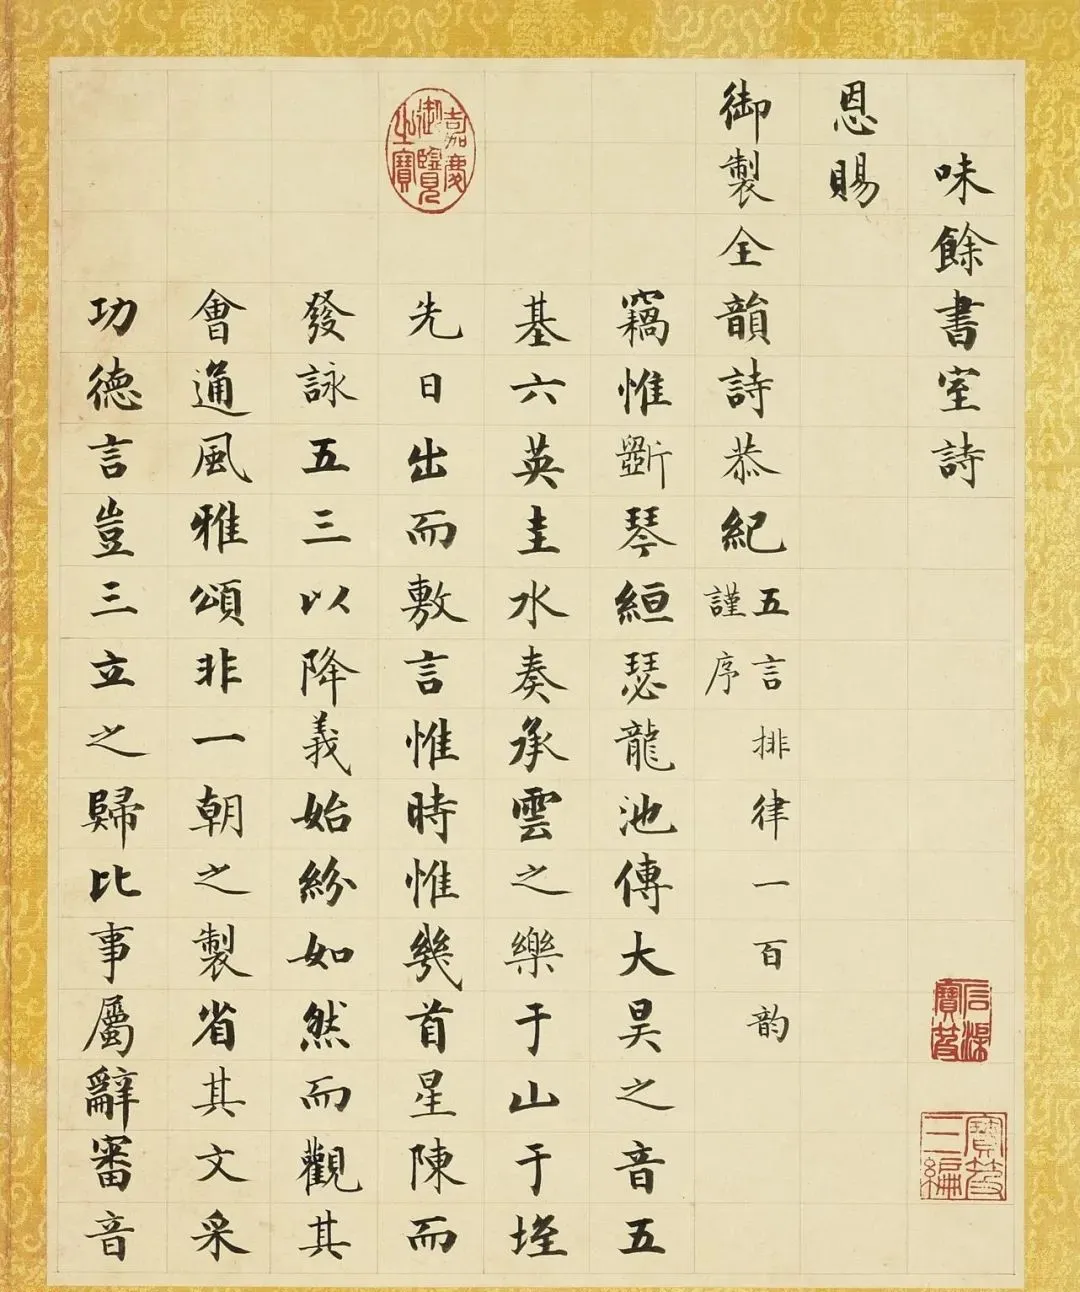 味餘書室詩
恩賜
御製全韻詩恭紀
五言排律一百韵
謹序
竊惟斲琴絙瑟龍池傳大昊之音五
基六英圭水奏承雲之樂于山于垤
先日出而敷言惟時惟幾首星陳而
發詠五三以降義始紛如然而觀其
會通風雅頌非一朝之製省其文采
功德言豈三立之歸比事屬辭審音
嘉慶御覽之寶
寶笈三編